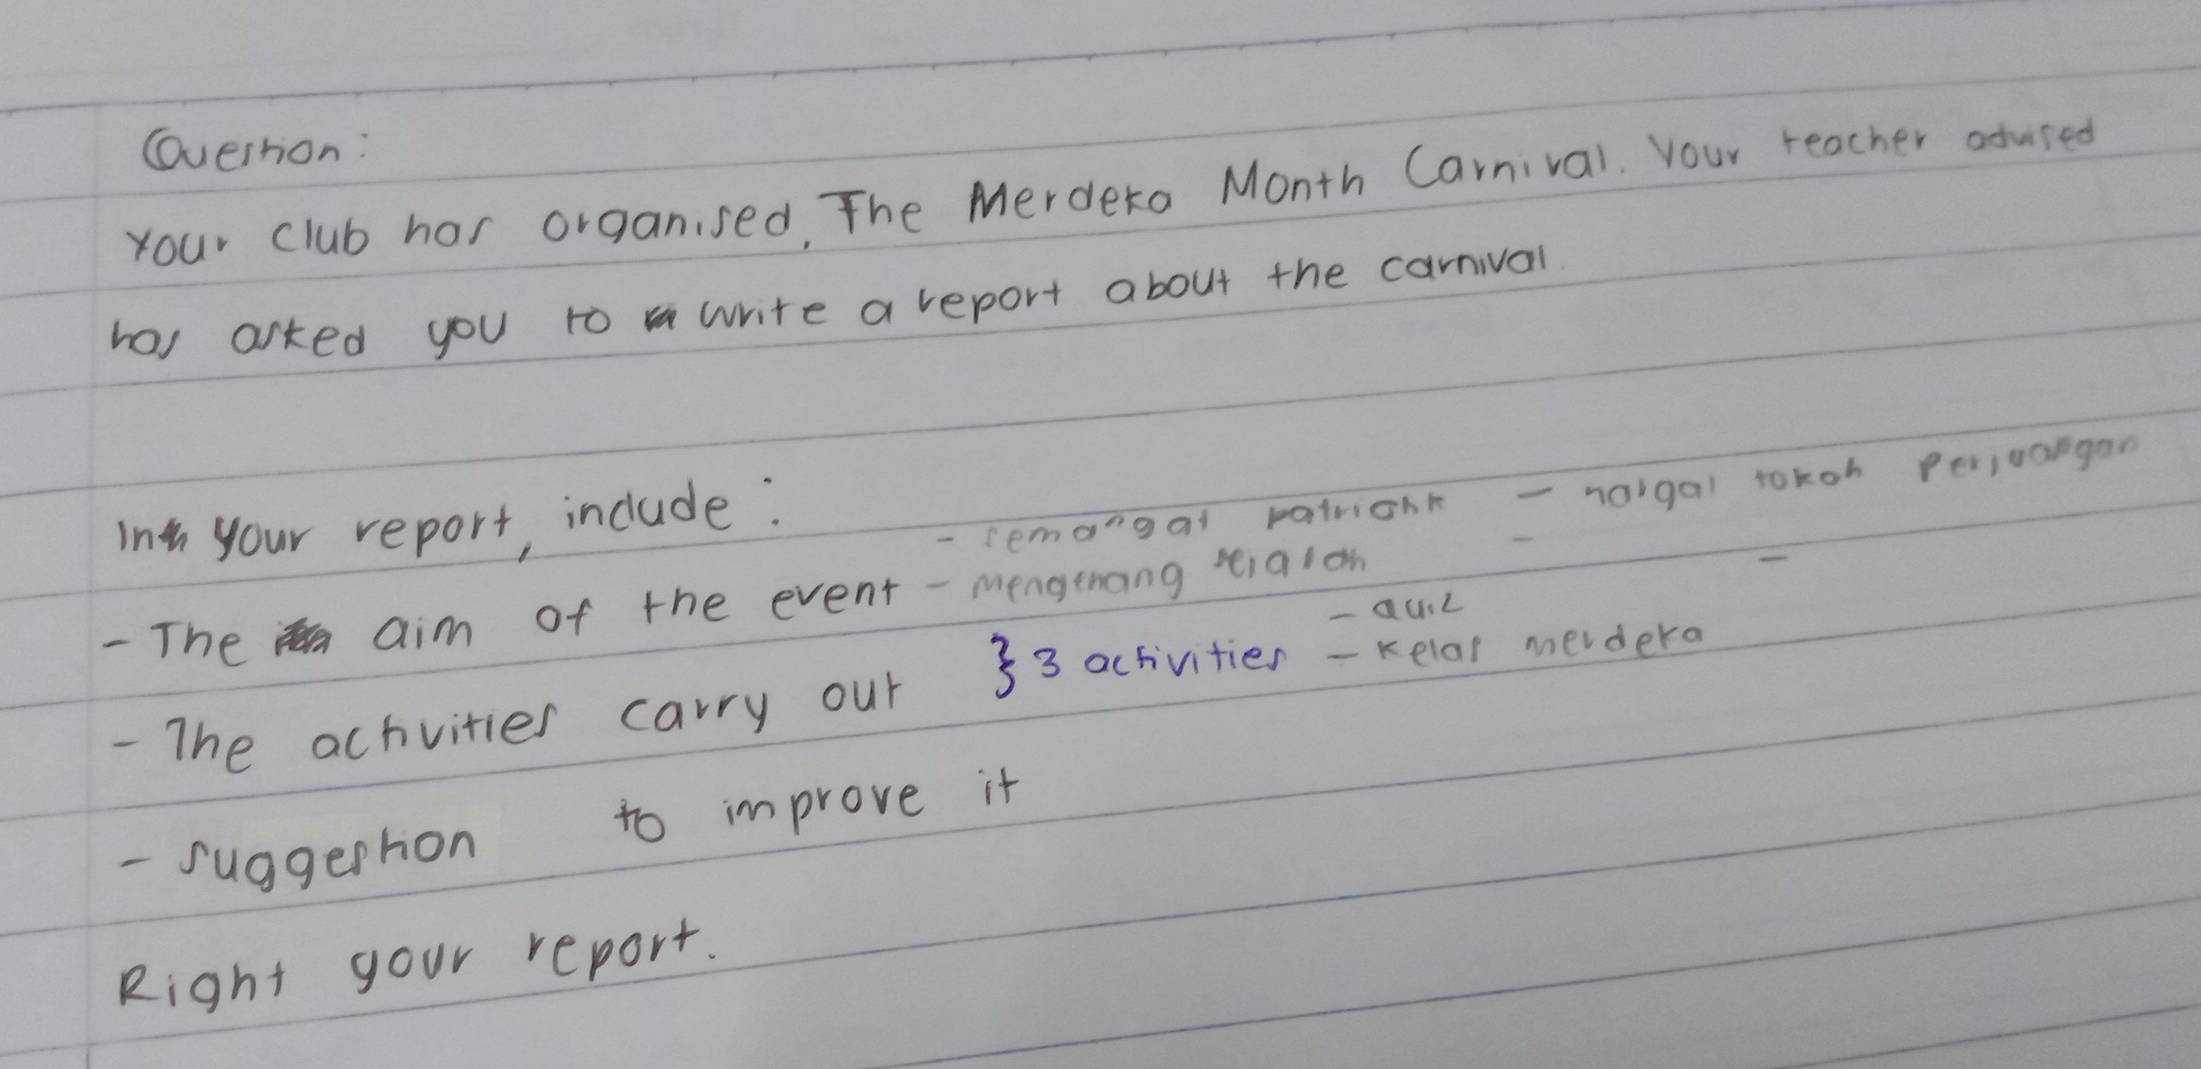 Question:
Your club has organised, The Merdeka Month Carnival. Your teacher advised
has asked you to write a report about the carnival.
In your report, include:
- semangat patriotik - hargai tokoh perjuangan
- The aim of the event - mengenang sejarah -
- The activities carry out } 3 activities - quiz -
- kelas merdeka
- suggestion to improve it
Right your report.